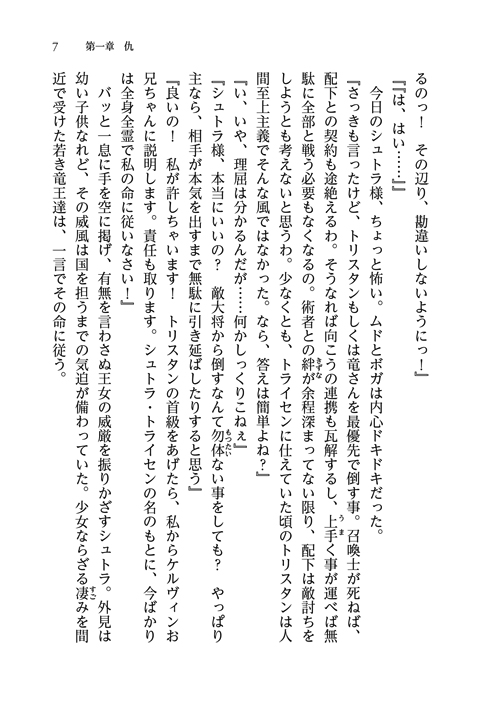 7　第一章　仇
るのっ！　その辺り、勘違いしないようにっ！』
『『は、はい……』』
　今日のシュトラ様、ちょっと怖い。ムドとボガは内心ドキドキだった。
『さっきも言ったけど、トリスタンもしくは竜さんを最優先で倒す事。召喚士が死ねば、
配下との契約も途絶えるわ。そうなれば向こうの連携も瓦解するし、上手く事が運べば無
駄に全部と戦う必要もなくなるの。術者との絆が余程深まってない限り、配下は敵討ちを
しようとも考えないと思うわ。少なくとも、トライセンに仕えていた頃のトリスタンは人
間至上主義でそんな風ではなかった。なら、答えは簡単よね？』
『い、いや、理屈は分かるんだが……何かしっくりこねぇ』
『シュトラ様、本当にいいの？　敵大将から倒すなんて勿体ない事をしても？　やっぱり
主なら、相手が本気を出すまで無駄に引き延ばしたりすると思う』
『良いの！　私が許しちゃいます！　トリスタンの首級をあげたら、私からケルヴィンお
兄ちゃんに説明します。責任も取ります。シュトラ・トライセンの名のもとに、今ばかり
は全身全霊で私の命に従いなさい！』
　バッと一息に手を空に掲げ、有無を言わさぬ王女の威厳を振りかざすシュトラ。外見は
幼い子供なれど、その威風は国を担うまでの気迫が備わっていた。少女ならざる凄みを間
近で受けた若き竜王達は、一言でその命に従う。